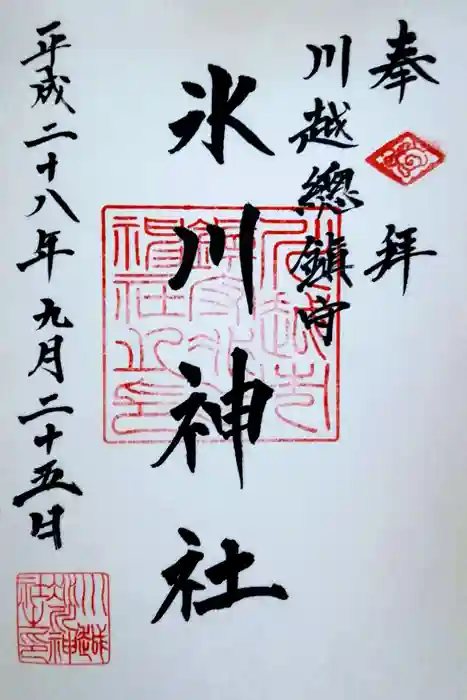 奉拝
川越總鎮守
氷川神社
平成二十八年九月二十五日